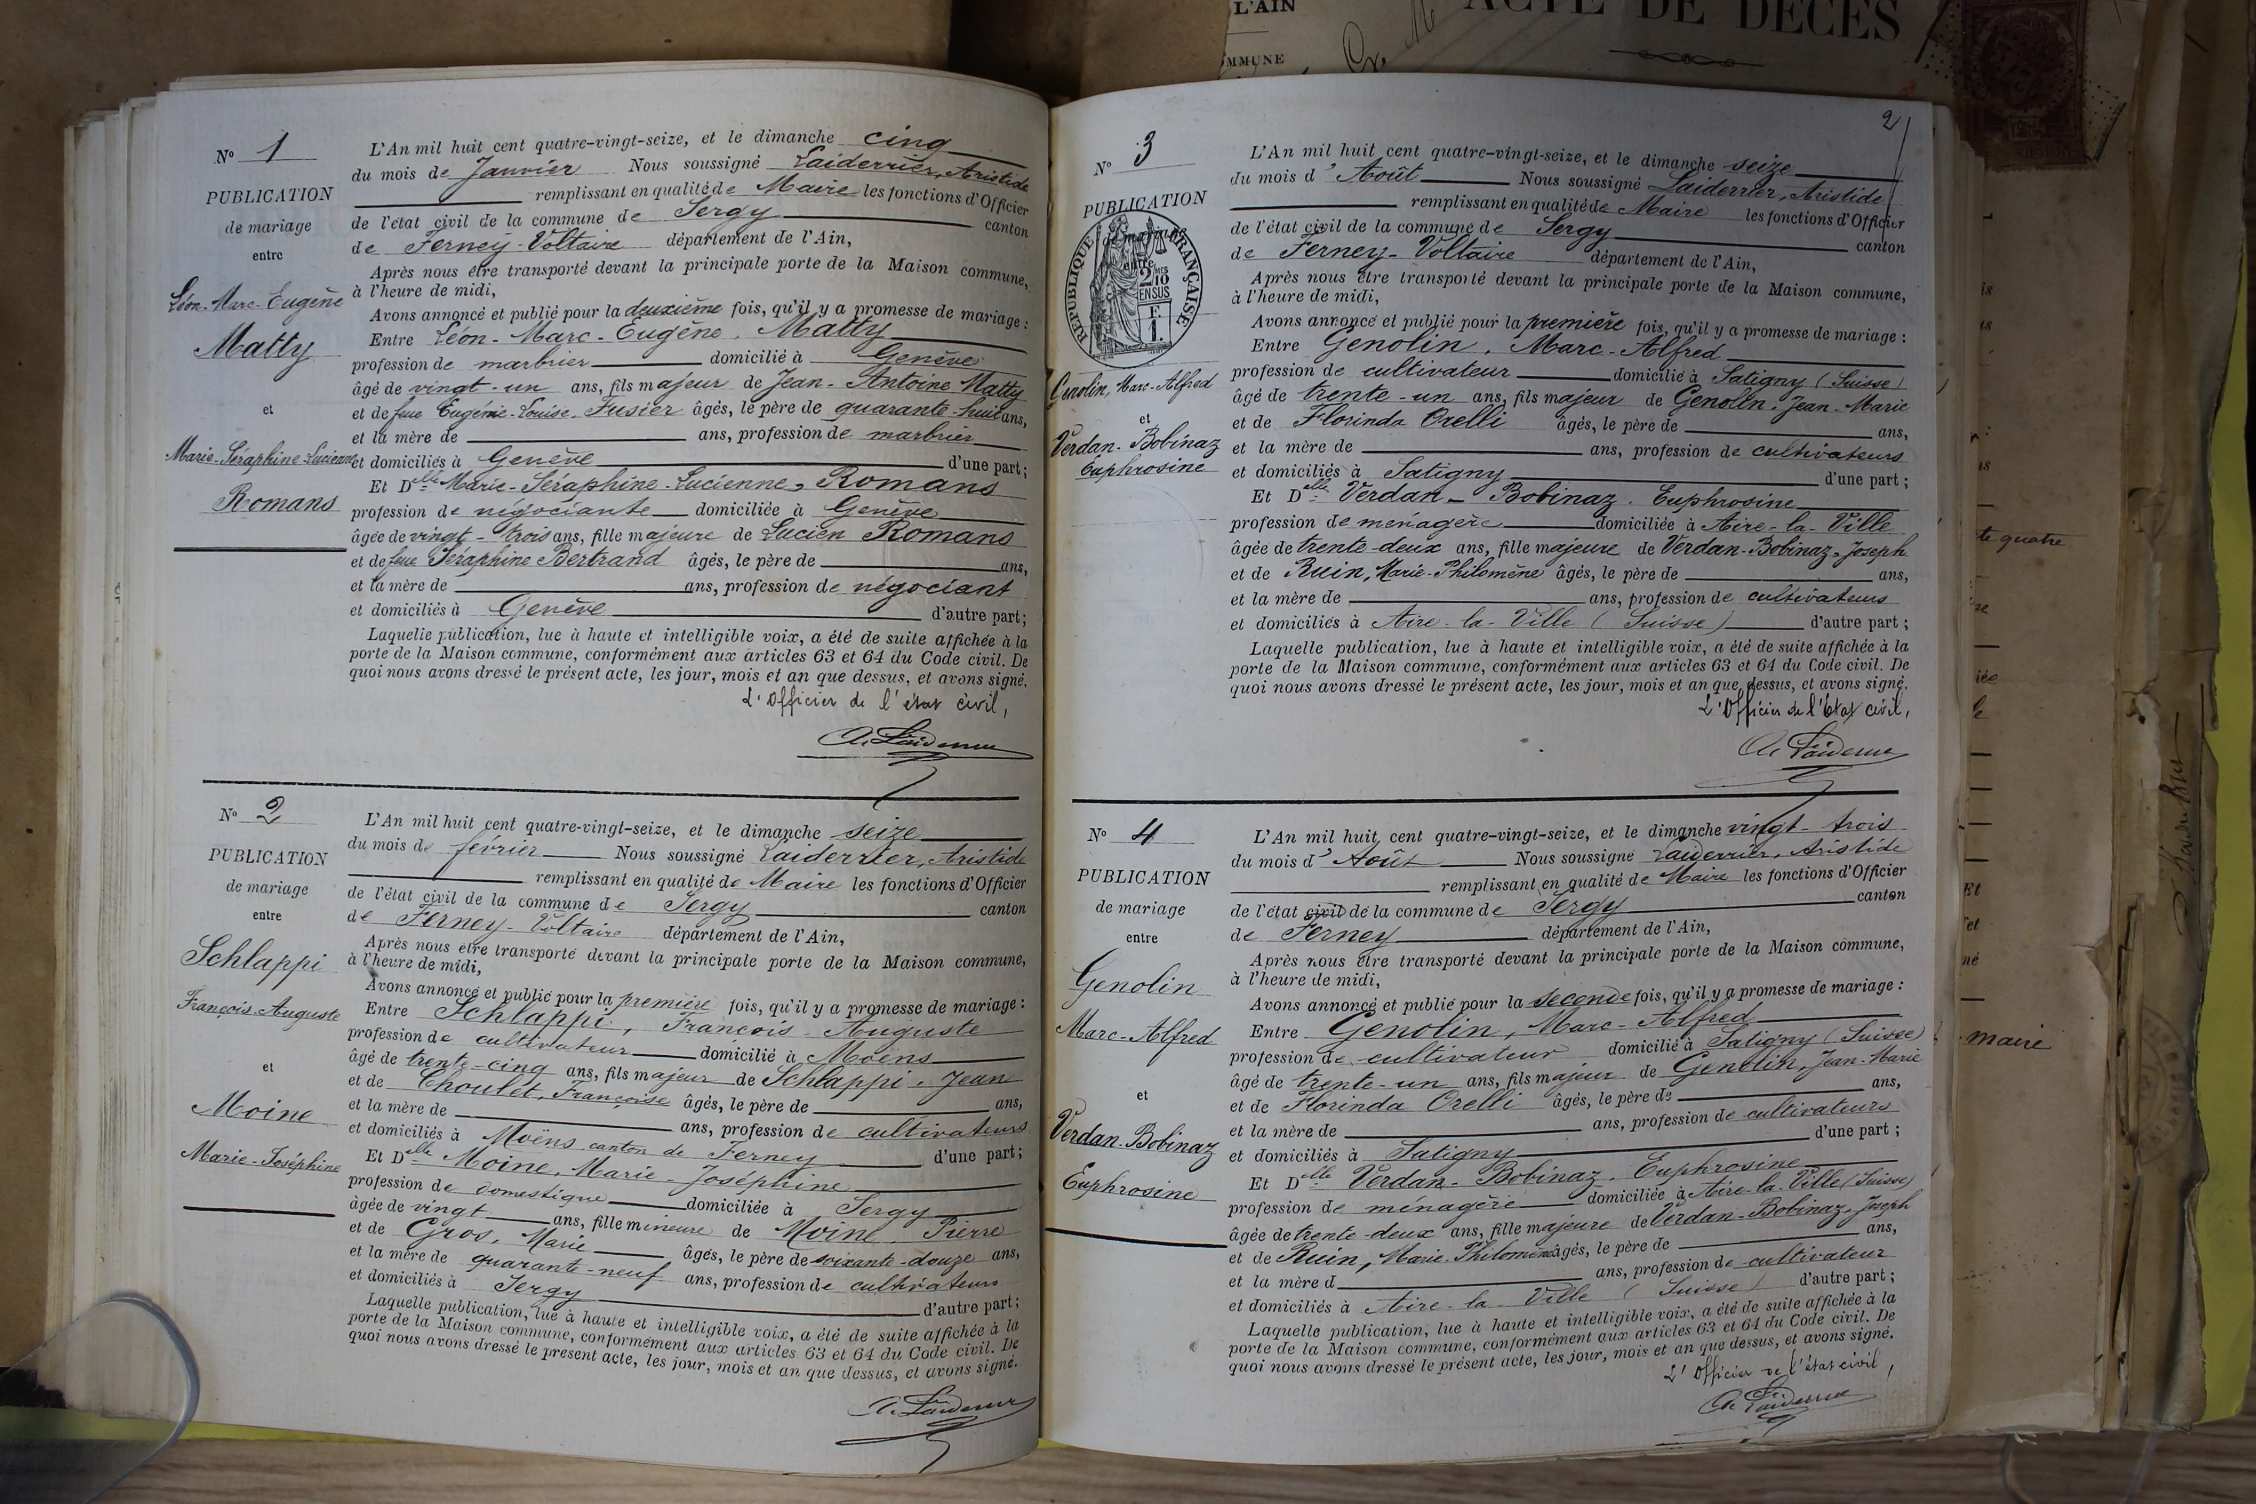 L'AIN
ACTE DE DÉCÈS
MMUNE
N° 1
PUBLICATION
de mariage
entre
Léon-Marc-Eugène
Matty
et
Marie-Séraphine-Lucienne
Romans
L'An mil huit cent quatre-vingt-seize, et le dimanche cinq
du mois de Janvier Nous soussigné Laiderrier, Aristide
remplissant en qualité de Maire les fonctions d'Officier
de l'état civil de la commune de Sergy canton
de Ferney-Voltaire département de l'Ain,
Après nous être transporté devant la principale porte de la Maison commune,
à l'heure de midi,
Avons annoncé et publié pour la deuxième fois, qu'il y a promesse de mariage :
Entre Léon-Marc-Eugène, Matty
profession de marbrier domicilié à Genève
âgé de vingt-un ans, fils majeur de Jean-Antoine Matty
et de feue Eugénie-Louise Fusier âgés, le père de quarante-huit ans,
et la mère de ans, profession de marbrier
et domiciliés à Genève d'une part ;
Et Delle Marie-Séraphine-Lucienne, Romans
profession de négociante domiciliée à Genève
âgée de vingt-trois ans, fille majeure de Lucien Romans
et de feue Séraphine Bertrand âgés, le père de ans,
et la mère de ans, profession de négociant
et domiciliés à Genève d'autre part ;
Laquelle publication, lue à haute et intelligible voix, a été de suite affichée à la
porte de la Maison commune, conformément aux articles 63 et 64 du Code civil. De
quoi nous avons dressé le présent acte, les jour, mois et an que dessus, et avons signé.
L'Officier de l'état civil,
A. Laiderrier
N° 2
PUBLICATION
de mariage
entre
Schlappi
François-Auguste
et
Moine
Marie-Joséphine
L'An mil huit cent quatre-vingt-seize, et le dimanche seize
du mois de février Nous soussigné Laiderrier, Aristide
remplissant en qualité de Maire les fonctions d'Officier
de l'état civil de la commune de Sergy canton
de Ferney-Voltaire département de l'Ain,
Après nous être transporté devant la principale porte de la Maison commune,
à l'heure de midi,
Avons annoncé et publié pour la première fois, qu'il y a promesse de mariage :
Entre Schlappi, François-Auguste
profession de cultivateur domicilié à Moëns
âgé de trente-cinq ans, fils majeur de Schlappi, Jean
et de Choulet, Françoise âgés, le père de ans,
et la mère de ans, profession de cultivateurs
et domiciliés à Moëns canton de Ferney d'une part ;
Et Delle Moine, Marie-Joséphine
profession de domestique domiciliée à Sergy
âgée de vingt ans, fille mineure de Moine, Pierre
et de Gros, Marie âgés, le père de soixante-douze ans,
et la mère de quarante-neuf ans, profession de cultivateurs
et domiciliés à Sergy d'autre part ;
Laquelle publication, lue à haute et intelligible voix, a été de suite affichée à la
porte de la Maison commune, conformément aux articles 63 et 64 du Code civil. De
quoi nous avons dressé le présent acte, les jour, mois et an que dessus, et avons signé.
A. Laiderrier
2
N° 3
PUBLICATION
de mariage
entre
RÉPUBLIQUE FRANÇAISE
2 MES
10
EN SUS
F.
1.
Genolin, Marc-Alfred
et
Verdan-Bobinaz
Euphrosine
L'An mil huit cent quatre-vingt-seize, et le dimanche seize
du mois d'Août Nous soussigné Laiderrier, Aristide
remplissant en qualité de Maire les fonctions d'Officier
de l'état civil de la commune de Sergy canton
de Ferney-Voltaire département de l'Ain,
Après nous être transporté devant la principale porte de la Maison commune,
à l'heure de midi,
Avons annoncé et publié pour la première fois, qu'il y a promesse de mariage :
Entre Genolin, Marc-Alfred
profession de cultivateur domicilié à Satigny (Suisse)
âgé de trente-un ans, fils majeur de Genolin, Jean-Marie
et de Florinda Orelli âgés, le père de ans,
et la mère de ans, profession de cultivateurs
et domiciliés à Satigny d'une part ;
Et Delle Verdan-Bobinaz, Euphrosine
profession de ménagère domiciliée à Aire-la-Ville
âgée de trente-deux ans, fille majeure de Verdan-Bobinaz, Joseph
et de Ruin, Marie-Philomène âgés, le père de ans,
et la mère de ans, profession de cultivateurs
et domiciliés à Aire-la-Ville (Suisse) d'autre part ;
Laquelle publication, lue à haute et intelligible voix, a été de suite affichée à la
porte de la Maison commune, conformément aux articles 63 et 64 du Code civil. De
quoi nous avons dressé le présent acte, les jour, mois et an que dessus, et avons signé.
L'Officier de l'état civil,
A. Laiderrier
N° 4
PUBLICATION
de mariage
entre
Genolin
Marc-Alfred
et
Verdan-Bobinaz
Euphrosine
L'An mil huit cent quatre-vingt-seize, et le dimanche vingt-trois
du mois d'Août Nous soussigné Laiderrier, Aristide
remplissant en qualité de Maire les fonctions d'Officier
de l'état civil de la commune de Sergy canton
de Ferney département de l'Ain,
Après nous être transporté devant la principale porte de la Maison commune,
à l'heure de midi,
Avons annoncé et publié pour la seconde fois, qu'il y a promesse de mariage :
Entre Genolin, Marc-Alfred
profession de cultivateur domicilié à Satigny (Suisse)
âgé de trente-un ans, fils majeur de Genolin, Jean-Marie
et de Florinda Orelli âgés, le père de ans,
et la mère de ans, profession de cultivateurs
et domiciliés à Satigny d'une part ;
Et Delle Verdan-Bobinaz, Euphrosine
profession de ménagère domiciliée à Aire-la-Ville (Suisse)
âgée de trente-deux ans, fille majeure de Verdan-Bobinaz, Joseph
et de Ruin, Marie-Philomène âgés, le père de ans,
et la mère d ans, profession de cultivateur
et domiciliés à Aire-la-Ville (Suisse) d'autre part ;
Laquelle publication, lue à haute et intelligible voix, a été de suite affichée à la
porte de la Maison commune, conformément aux articles 63 et 64 du Code civil. De
quoi nous avons dressé le présent acte, les jour, mois et an que dessus, et avons signé.
L'Officier de l'état civil,
A. Laiderrier
te quatre
Et
et
né
maire